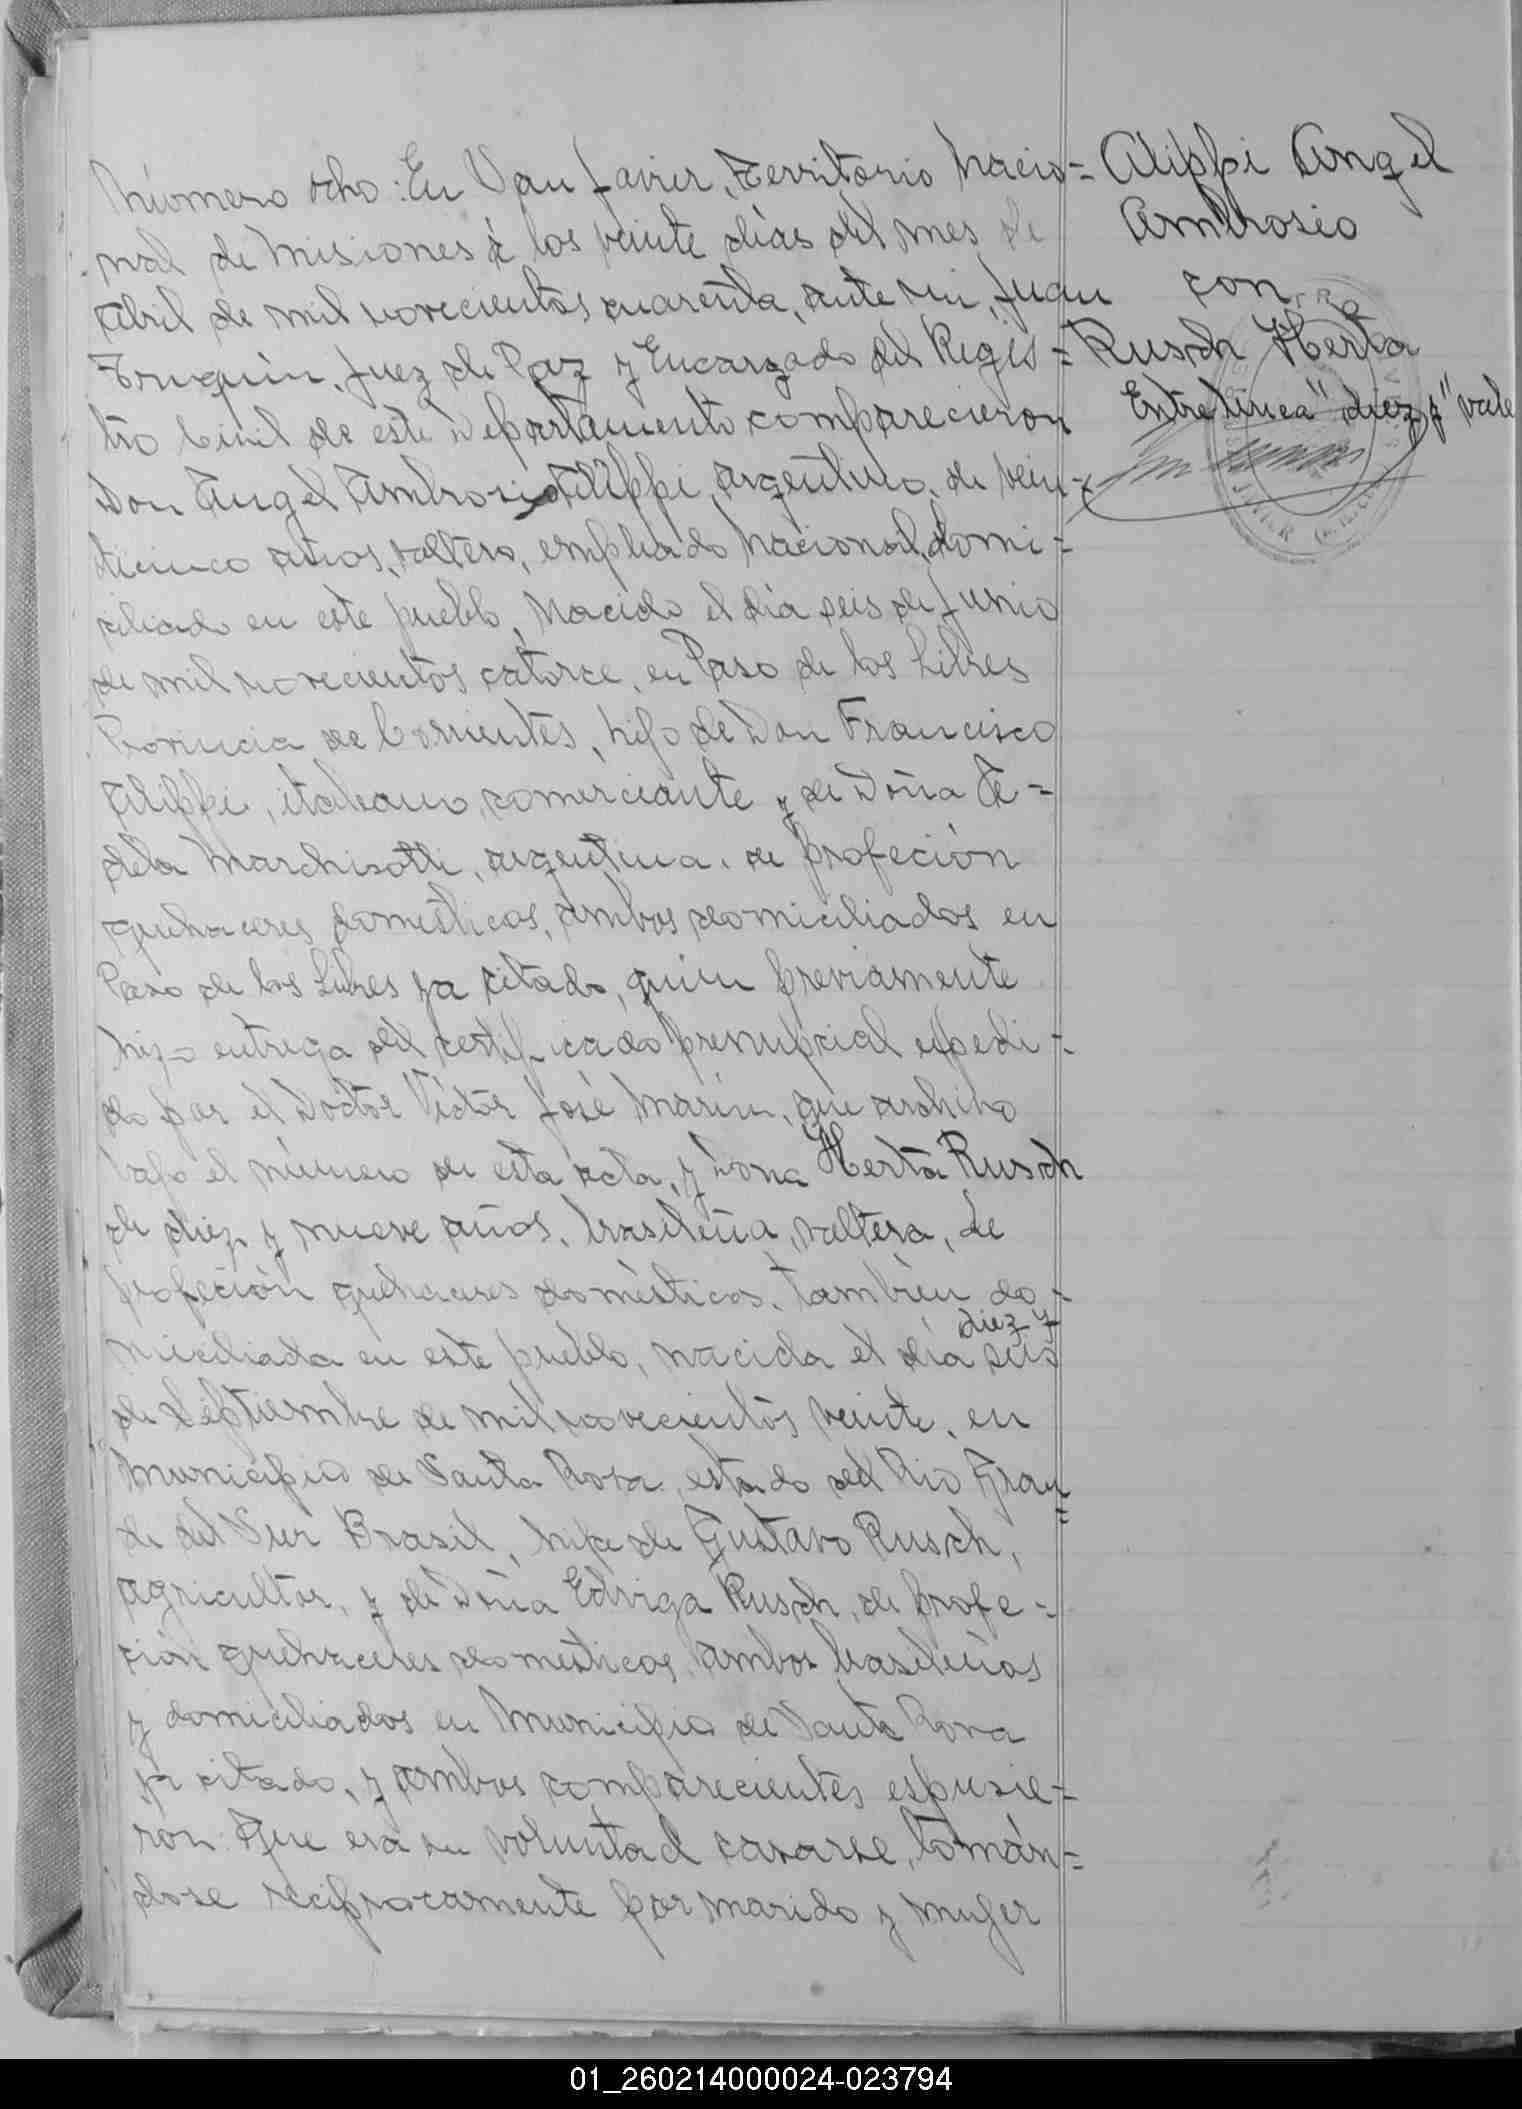 Número ocho: En San Javier, Territorio Nacio=
nal de Misiones à los veinte días del mes de
Abril de mil novecientos cuarenta, ante mi, Juan
Truquin, Juez de Paz y Encargado del Regis=
tro Civil de este Departamento comparecieron
Don Angel Ambrosio Alippi, argentino, de vein-
ticinco años, soltero, empleado Nacional, domi=
ciliado en este pueblo, Nacido el día seis de Junio
de mil novecientos catorce, en Paso de los Libres
Provincia de Corrientes, hijo de Don Francisco
Alippi, italiano, comerciante y de Doña A=
dela Marchisotti, argentina, de profeción
quehaceres domésticos, ambos domiciliados en
Paso de los Libres ya citado, quien previamente
hizo entrega del certificado prenupcial espedi-
do por el Doctor Víctor José Marin, que archivo
bajo el número de esta acta, y Doña Herta Rusch
de diez y nueve años, brasileña, soltera, de
profeción quehaceres domésticos, también do-
diez y
miciliada en este pueblo, nacida el día seis
de Septiembre de mil novecientos veinte, en
Municipio de Santa Rosa, estado del Rio Gran=
de del Sur Brasil, hija de Gustavo Rusch,
agricultor, y de Doña Edviga Rusch, de profe-
ción quehaceres domésticos, ambos brasileños
y domiciliados en Municipio de Santa Rosa
ya citado, y ambos comparecientes espusie-
ron: Que era su voluntad casarse, tomán=
dose reciprocamente por marido y mujer
Alippi Angel
Ambrosio
con
Rusch Herta
Entre linea "diez y" vale
JAVIER
01_260214000024-023794